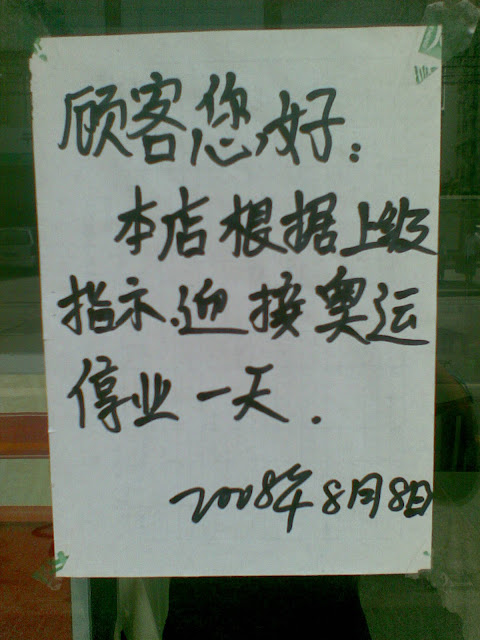 顾客您好：
本店根据上级
指示、迎接奥运
停业一天.
2008年8月8日